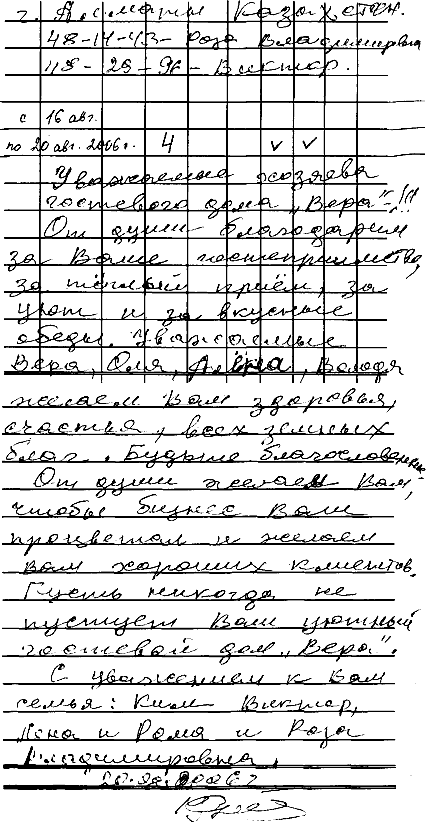 г. Алматы Казахстан.
48-14-43- Роза Владимировна
48-28-96- Виктор.
с 16 авг.
по 20 авг. 2006г. 4 ✓ ✓
Уважаемые хозяева
гостевого дома „Вера"-!!!
От души благодарим
за Ваше гостеприимство,
за тёплый приём, за
уют и за вкусные
обеды. Уважаемые
Вера, Оля, Алёна, Володя
желаем Вам здоровья,
счастья, всех земных
благ. Будьте благословенны.
От души желаем Вам,
чтобы бизнес Ваш
процветал и желаем
вам хороших клиентов.
Пусть никогда не
пустует Ваш уютный
гостевой дом „Вера".
С уважением к Вам
семья: Ким Виктор,
Лена и Рома и Роза
Владимировна,